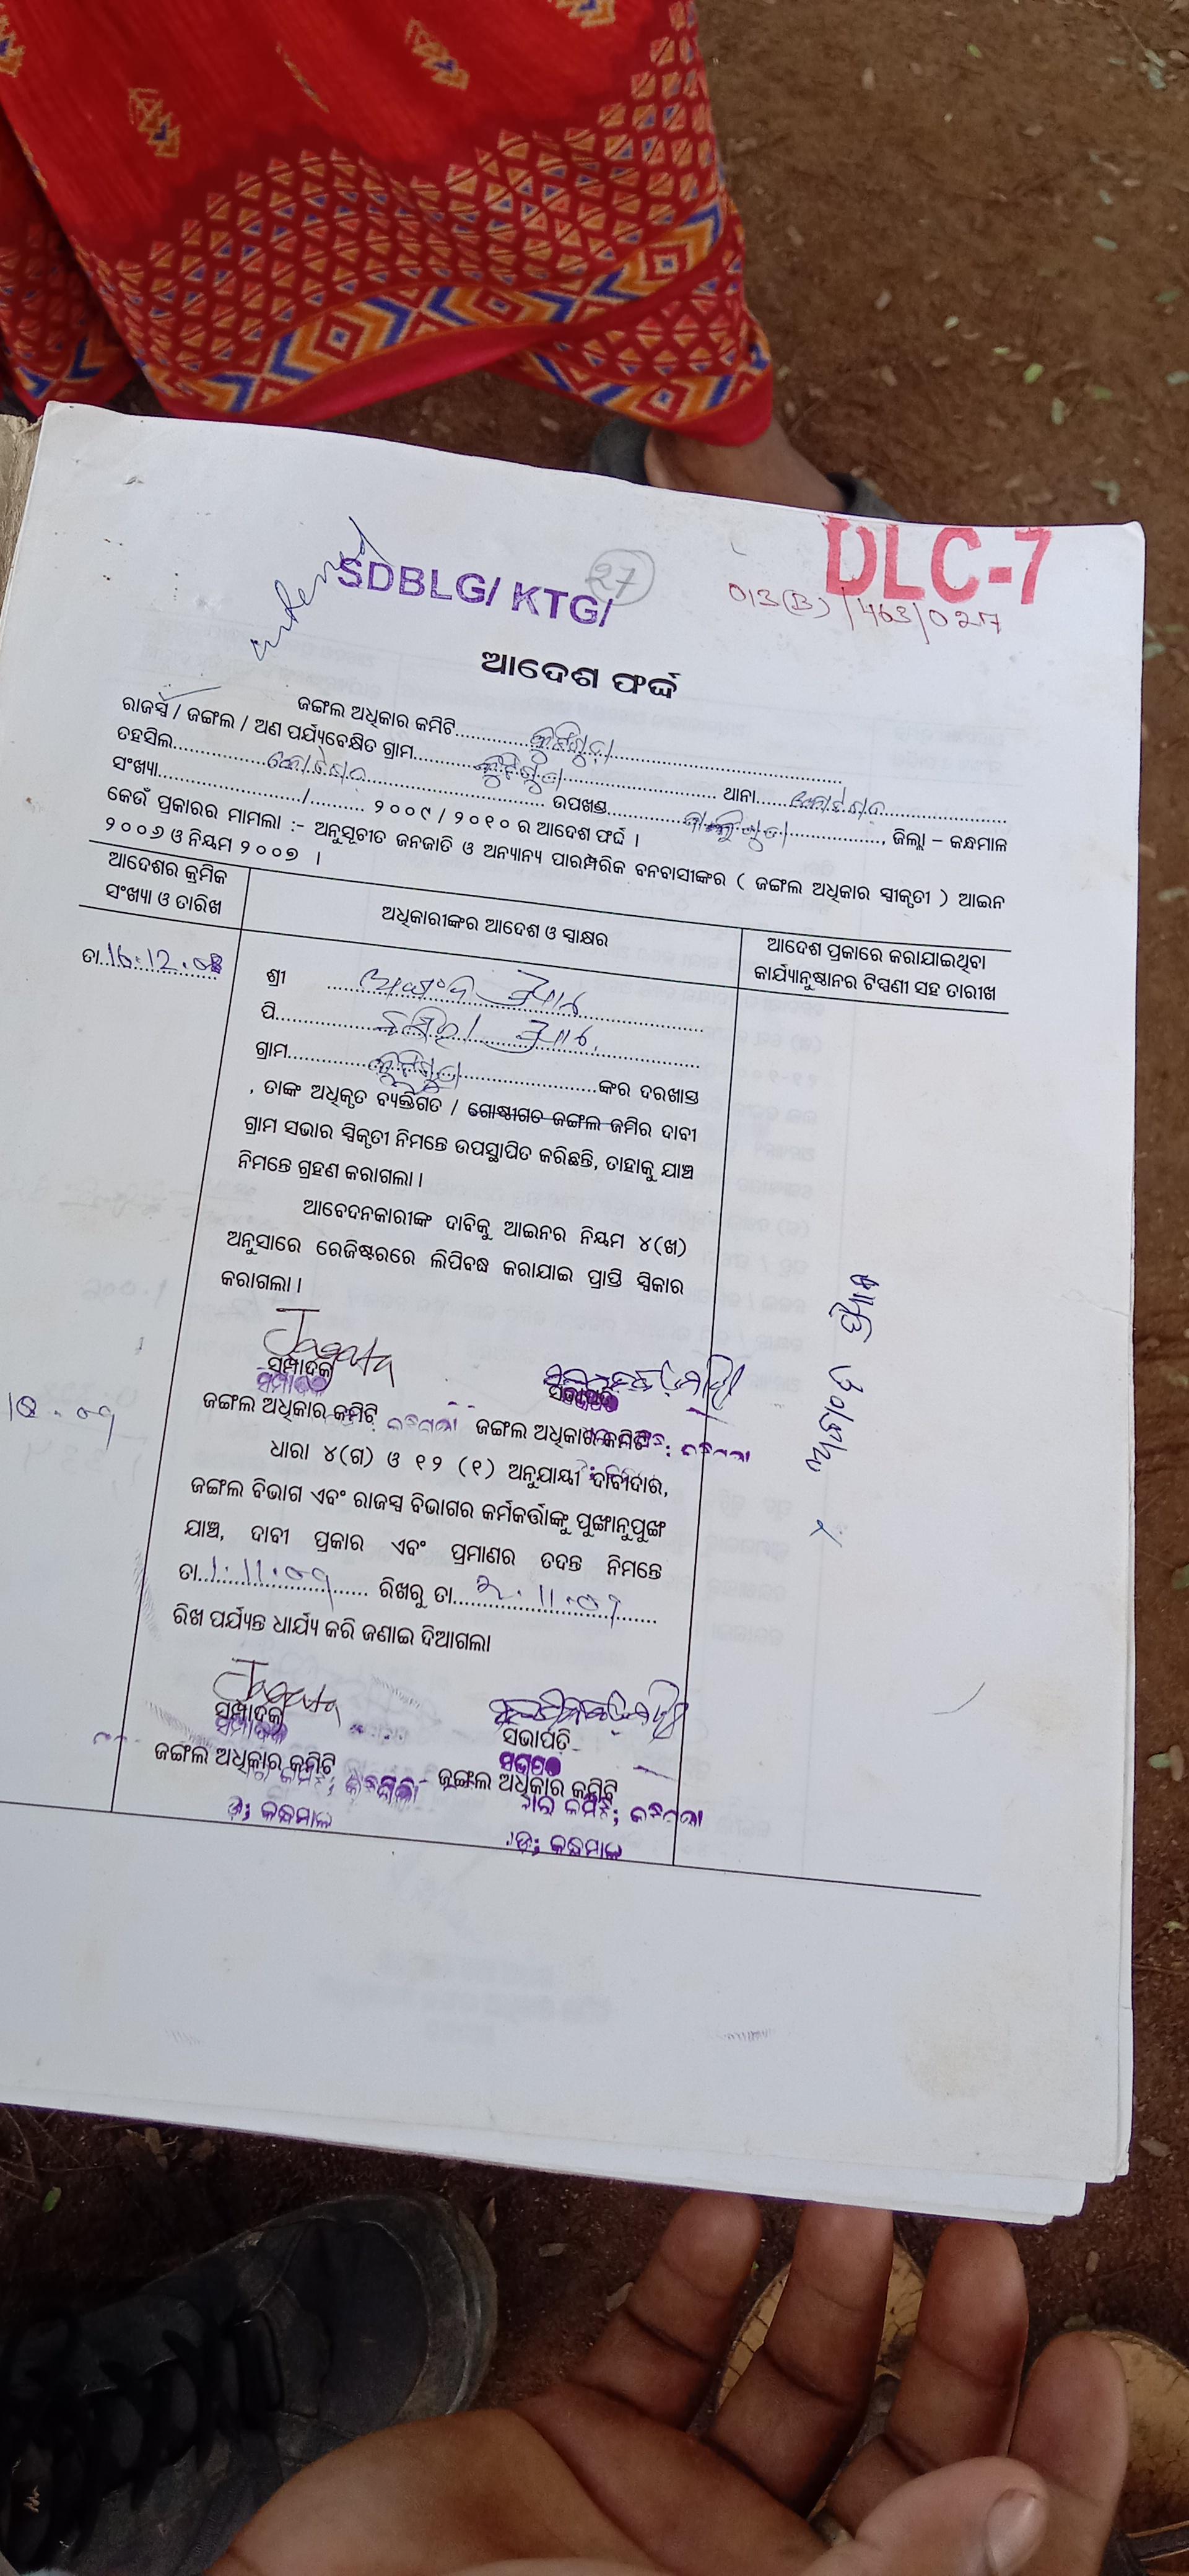 DLC-7
SDBLG/ KTG/
27
013(B)/463/027
ଆଦେଶ ଫର୍ଦ୍ଦ
ଜଙ୍ଗଲ ଅଧିକାର କମିଟି
ରାଜସ୍ୱ / ଜଙ୍ଗଲ / ଅଣ ପର୍ଯ୍ୟବେକ୍ଷିତ ଗ୍ରାମ
ତହସିଲ ଥାନା
ସଂଖ୍ୟା ଉପଖଣ୍ଡ , ଜିଲ୍ଲା – କନ୍ଧମାଳ
/ ୨୦୦୯ / ୨୦୧୦ ର ଆଦେଶ ଫର୍ଦ୍ଦ ।
କେଉଁ ପ୍ରକାରର ମାମଲା :- ଅନୁସୂଚୀତ ଜନଜାତି ଓ ଅନ୍ୟାନ୍ୟ ପାରମ୍ପରିକ ବନବାସୀଙ୍କର ( ଜଙ୍ଗଲ ଅଧିକାର ସ୍ୱୀକୃତୀ ) ଆଇନ
୨୦୦୬ ଓ ନିୟମ ୨୦୦୭ ।
ଆଦେଶର କ୍ରମିକ
ସଂଖ୍ୟା ଓ ତାରିଖ
ଅଧିକାରୀଙ୍କର ଆଦେଶ ଓ ସ୍ୱାକ୍ଷର
ଆଦେଶ ପ୍ରକାରେ କରାଯାଇଥିବା
କାର୍ଯ୍ୟାନୁଷ୍ଠାନର ଟିପ୍ପଣୀ ସହ ତାରୀଖ
ତା 16.12.08
ଶ୍ରୀ
ପି
ଗ୍ରାମ ଙ୍କର ଦରଖାସ୍ତ
, ତାଙ୍କ ଅଧିକୃତ ବ୍ୟକ୍ତିଗତ / ଗୋଷ୍ଠୀଗତ ଜଙ୍ଗଲ ଜମିର ଦାବୀ
ଗ୍ରାମ ସଭାର ସ୍ୱିକୃତୀ ନିମନ୍ତେ ଉପସ୍ଥାପିତ କରିଛନ୍ତି, ତାହାକୁ ଯାଞ୍ଚ
ନିମନ୍ତେ ଗ୍ରହଣ କରାଗଲା ।
ଆବେଦନକାରୀଙ୍କ ଦାବିକୁ ଆଇନର ନିୟମ ୪(ଖ)
ଅନୁସାରେ ରେଜିଷ୍ଟରରେ ଲିପିବଦ୍ଧ କରାଯାଇ ପ୍ରାପ୍ତି ସ୍ୱିକାର
କରାଗଲା ।
ସମ୍ପାଦକ ସଭାପତି
ଜଙ୍ଗଲ ଅଧିକାର କମିଟି ଜଙ୍ଗଲ ଅଧିକାର କମିଟି
ଧାରା ୪(ଗ) ଓ ୧୨ (୧) ଅନୁଯାୟୀ ଦାବୀଦାର,
ଜଙ୍ଗଲ ବିଭାଗ ଏବଂ ରାଜସ୍ୱ ବିଭାଗର କର୍ମକର୍ତ୍ତାଙ୍କୁ ପୁଙ୍ଖାନୁପୁଙ୍ଖ
ଯାଞ୍ଚ, ଦାବୀ ପ୍ରକାର ଏବଂ ପ୍ରମାଣର ତଦନ୍ତ ନିମନ୍ତେ
ତା 1.11.09 ରିଖରୁ ତା 2.11.09
ରିଖ ପର୍ଯ୍ୟନ୍ତ ଧାର୍ଯ୍ୟ କରି ଜଣାଇ ଦିଆଗଲା
ସମ୍ପାଦକ ସଭାପତି
ଜଙ୍ଗଲ ଅଧିକାର କମିଟି ଜଙ୍ଗଲ ଅଧିକାର କମିଟି
କନ୍ଧମାଳ
କନ୍ଧମାଳ